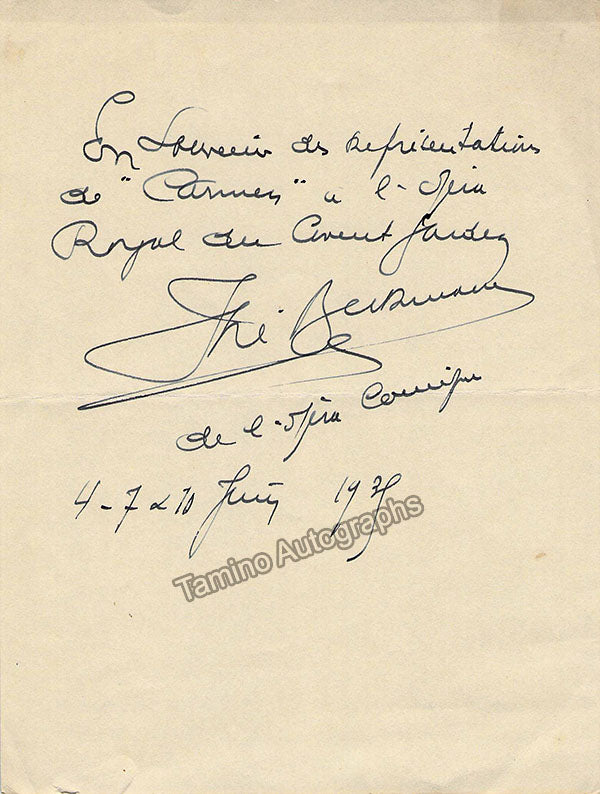 En Souvenir des Représentations
de "Carmen" à l-opéra
Royal du Covent Garden
Thé Beckmans
de l-opéra Comique
4-7 & 10 Juin 1935
Tamino Autographs